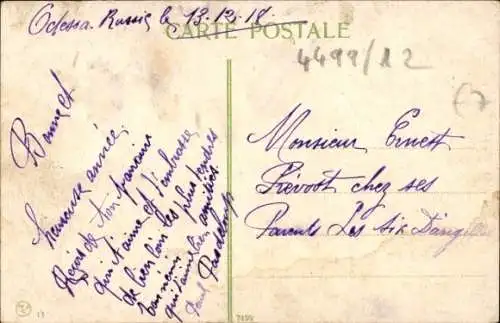 Odessa. Russie le 13.12.18.
CARTE POSTALE
4499/12
Bonne et
heureuse année.
Reçois de ton parrain
qui t'aime et t'embrasse
de bien loin les plus tendres
baisers
qui t'aime bien amitiés
Paul
Monsieur Ernest
Prévost chez ses
Parents Les six
7499
13